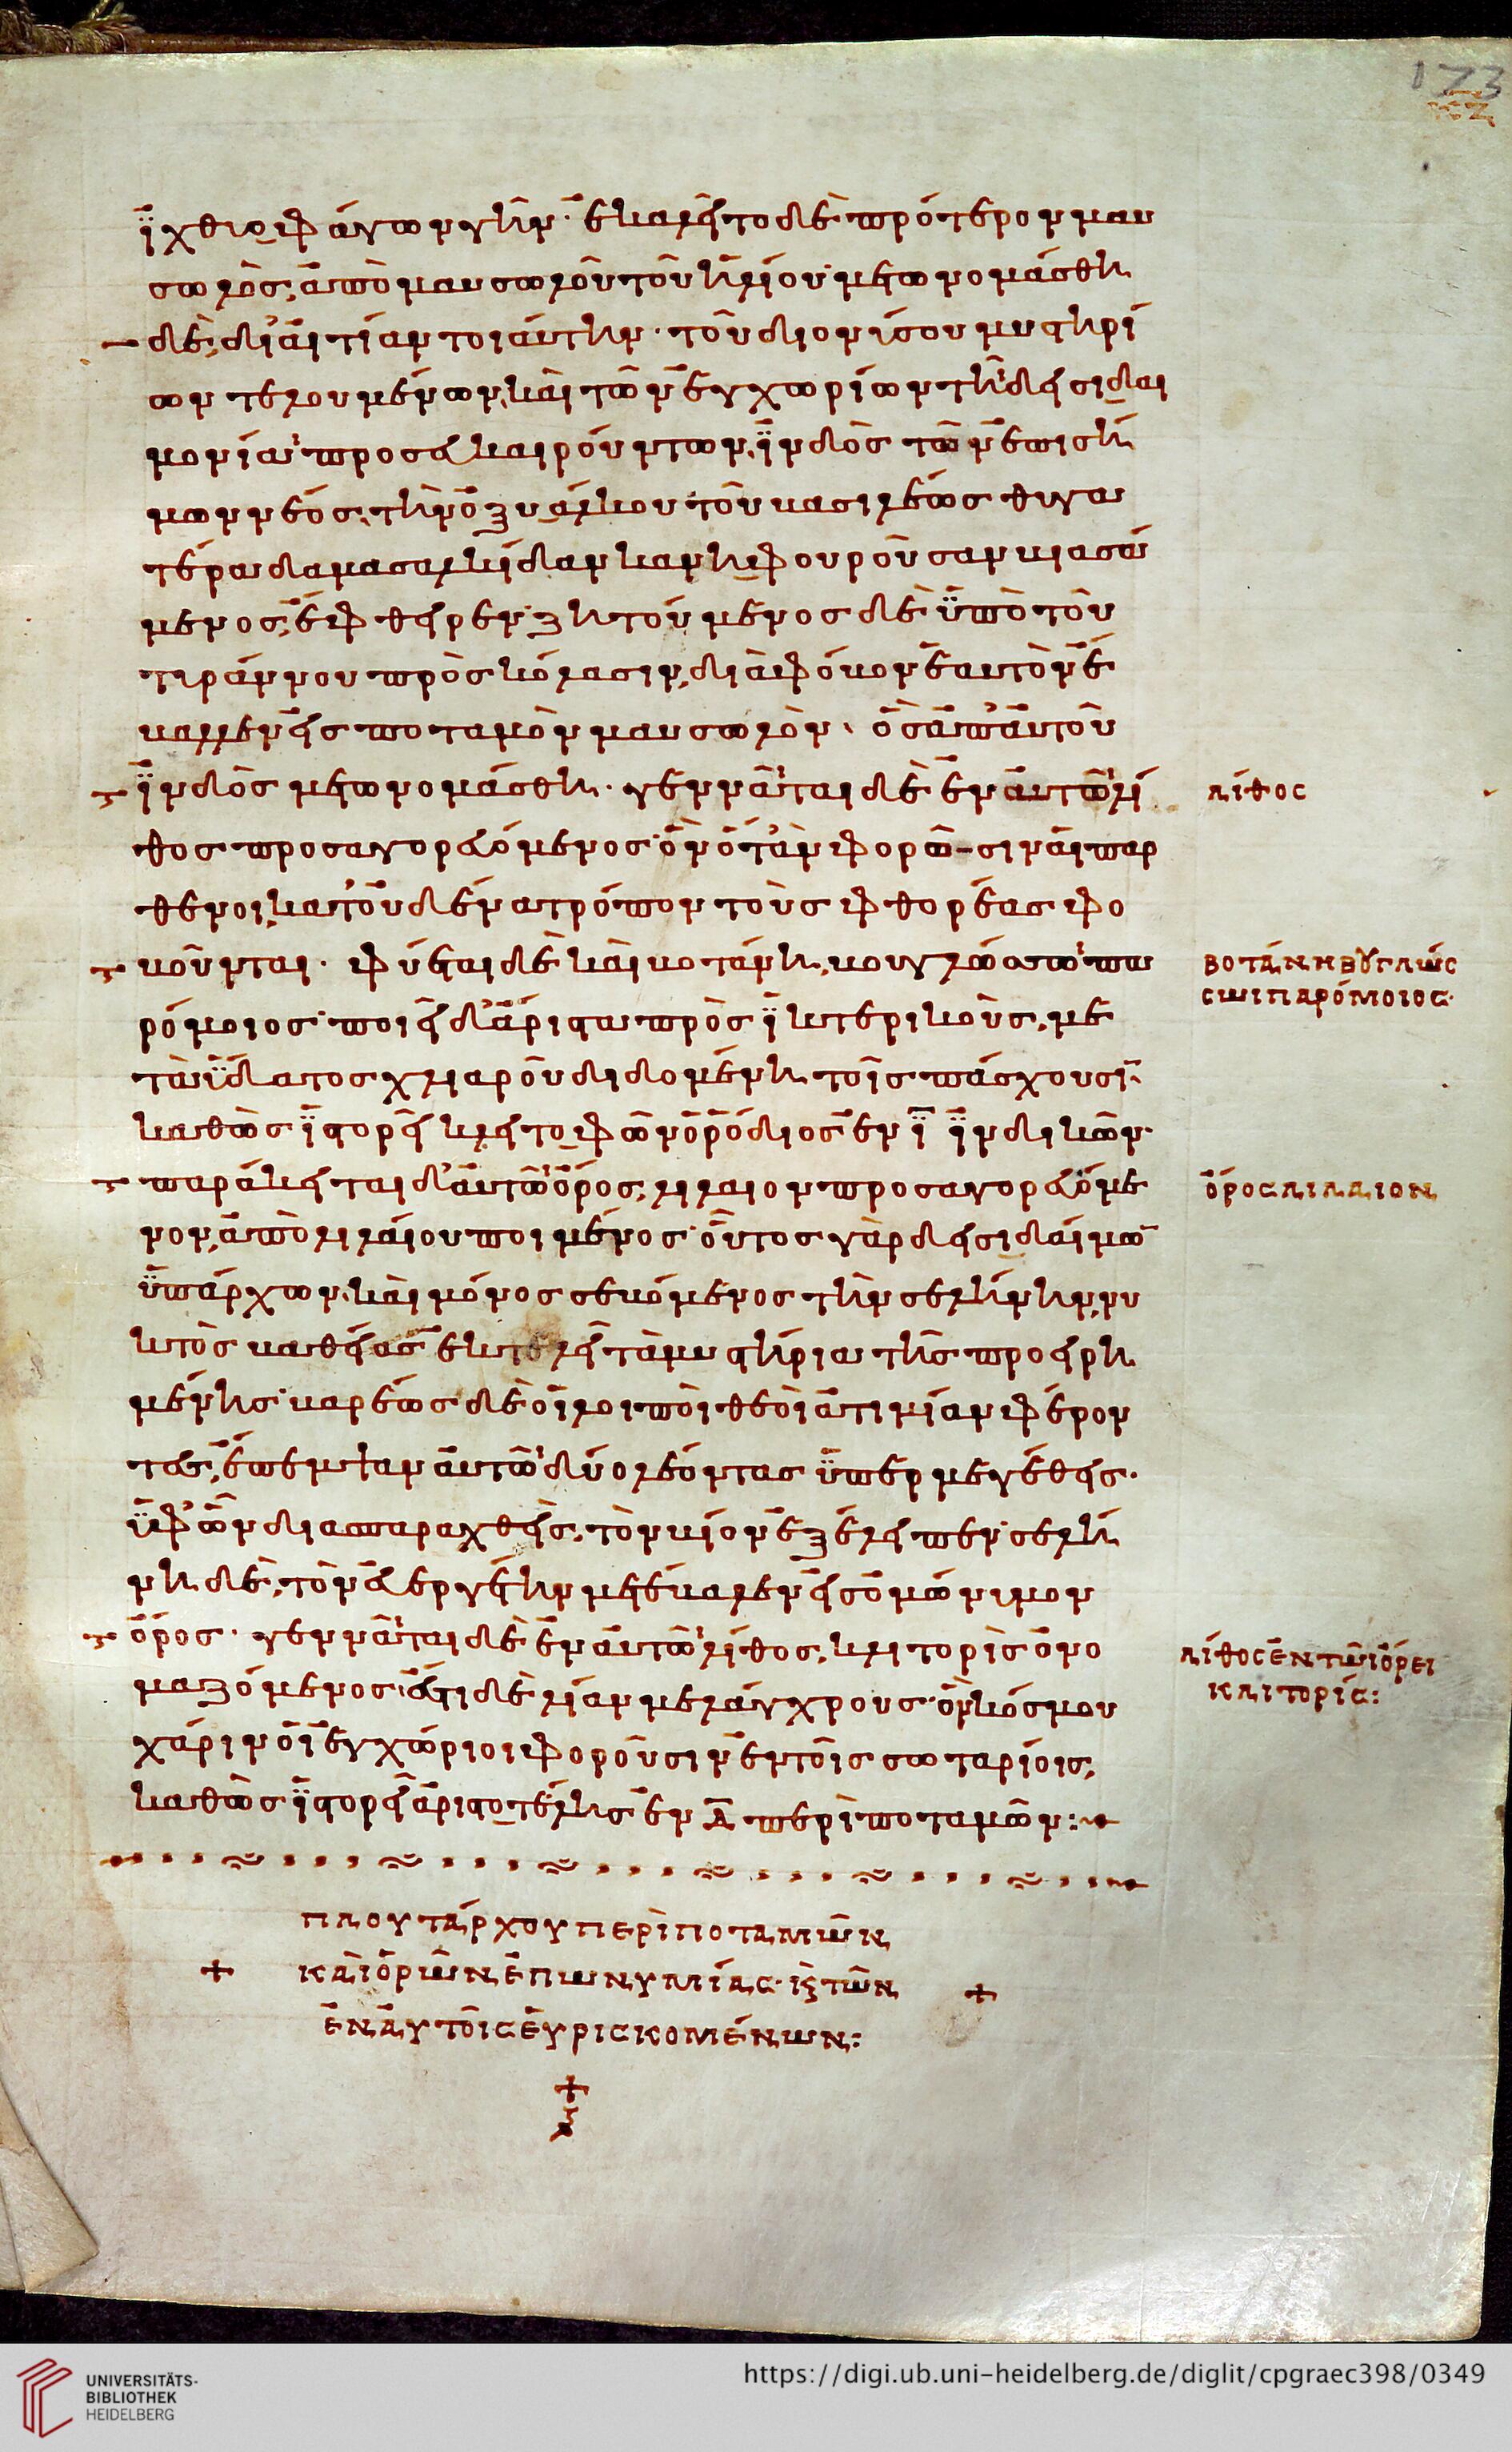 173
ἰχθυοφάγων γῆν· ἐκαλεῖτο δὲ πρότερον μαυ
σωλὸς, ἀπὸ μαυσωλοῦ τοῦ ἡλίου· μετωνομάσθη
δὲ, δι' αἰτίαν τοιαύτην· τοῦ διονύσου μυστηρί
ων τελουμένων, καὶ τῶν ἐγχωρίων τῆι δεισιδαι
μονίαι προσευκαιρούντων, ἰνδὸς τῶν ἐπισή
μων νέος, τὴν ὀξυάλκου τοῦ βασιλέως θυγα
τέρα δαμασαλκίδαν κανηφοροῦσαν βιασά
μενος, ἔφθειρεν· ζητούμενος δὲ ὑπὸ τοῦ
τυράννου πρὸς κόλασιν, διὰ φόβον ἑαυτὸν ἔ
βαλλεν εἰς ποταμὸν μαυσωλὸν, ὃς ἀπ' αὐτοῦ
ἰνδὸς μετωνομάσθη· γεννᾶται δὲ ἐν αὐτῶι λί
θος προσαγορευόμενος· ὃν ὅτ' ἂν φορῶ-σιν αἱ παρ
θένοι, κατ' οὐδένα τρόπον τοὺς φθορέας φο
βοῦνται· φύεται δὲ καὶ βοτάνη, βουγλώσσωι πα
ρόμοιος· ποιεῖ δ' ἄριστα πρὸς ἰκτερικοὺς, με
τὰ ὕδατος χλιαροῦ διδομένη τοῖς πάσχουσι
καθὼς ἱστορεῖ κλειτοφῶν ὁ ῥόδιος ἐν ι ἰνδικῶν·
παράκειται δ' αὐτῶι ὄρος, λίλαιον προσαγορευόμε
νον, ἀπὸ λιλαίου ποιμένος· οὗτος γὰρ δεισιδαίμω
ὑπάρχων, καὶ μόνος σεβόμενος τὴν σελήνην, νυ
κτὸς βαθείας ἐκτελεῖ τὰ μυστήρια τῆς προειρη
μένης· βαρέως δὲ οἱ λοιποὶ θεοὶ ἀτιμίαν φέρον
τες, ἔπεμψαν αὐτῶι δύο λέοντας ὑπερμεγέθεις·
ὑφ' ὧν διασπαραχθεὶς, τὸν βίον ἐξέλειπεν· σελή
νη δὲ, τὸν εὐεργέτην μετέβαλεν εἰς ὁμώνυμον
ὄρος· γεννᾶται δὲ ἐν αὐτῶι λίθος, κλιτορὶς ὀνο
μαζόμενος· ἔστι δὲ λίαν μελάγχρους· ὃν κόσμου
χάριν οἱ ἐγχώριοι φοροῦσιν ἐν τοῖς ωταρίοις,
καθὼς ἱστορεῖ ἀριστοτέλης ἐν Δ περὶ ποταμῶν:
λίθος
βοτάνη βουγλώσ
σωι παρόμοιος·
ὄρος λίλαιον
λίθος ἐν τῶι ὄρει
κλιτορίς:
πλουτάρχου περὶ ποταμῶν
+ καὶ ὀρῶν ἐπωνυμίας· κὶ τῶν +
ἐν αὐτοῖς εὑρισκομένων:
+
UNIVERSITÄTS-
BIBLIOTHEK
HEIDELBERG
https://digi.ub.uni-heidelberg.de/diglit/cpgraec398/0349